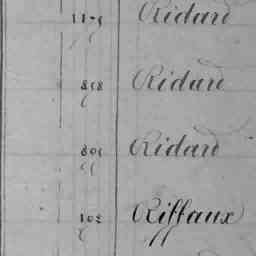 Ridard
858 Ridard
508 Ridard
102 Riffaux